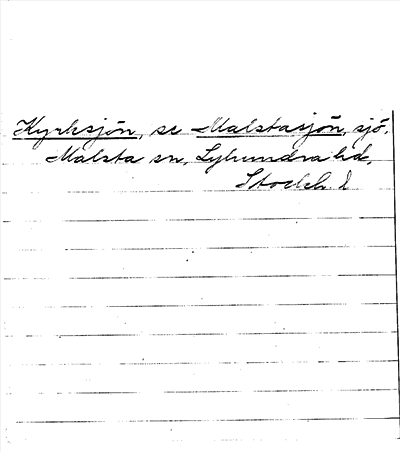 Kyrksjön, se Malstasjön, sjö,
Malsta sn, Lyhundra hd,
Stockh. l